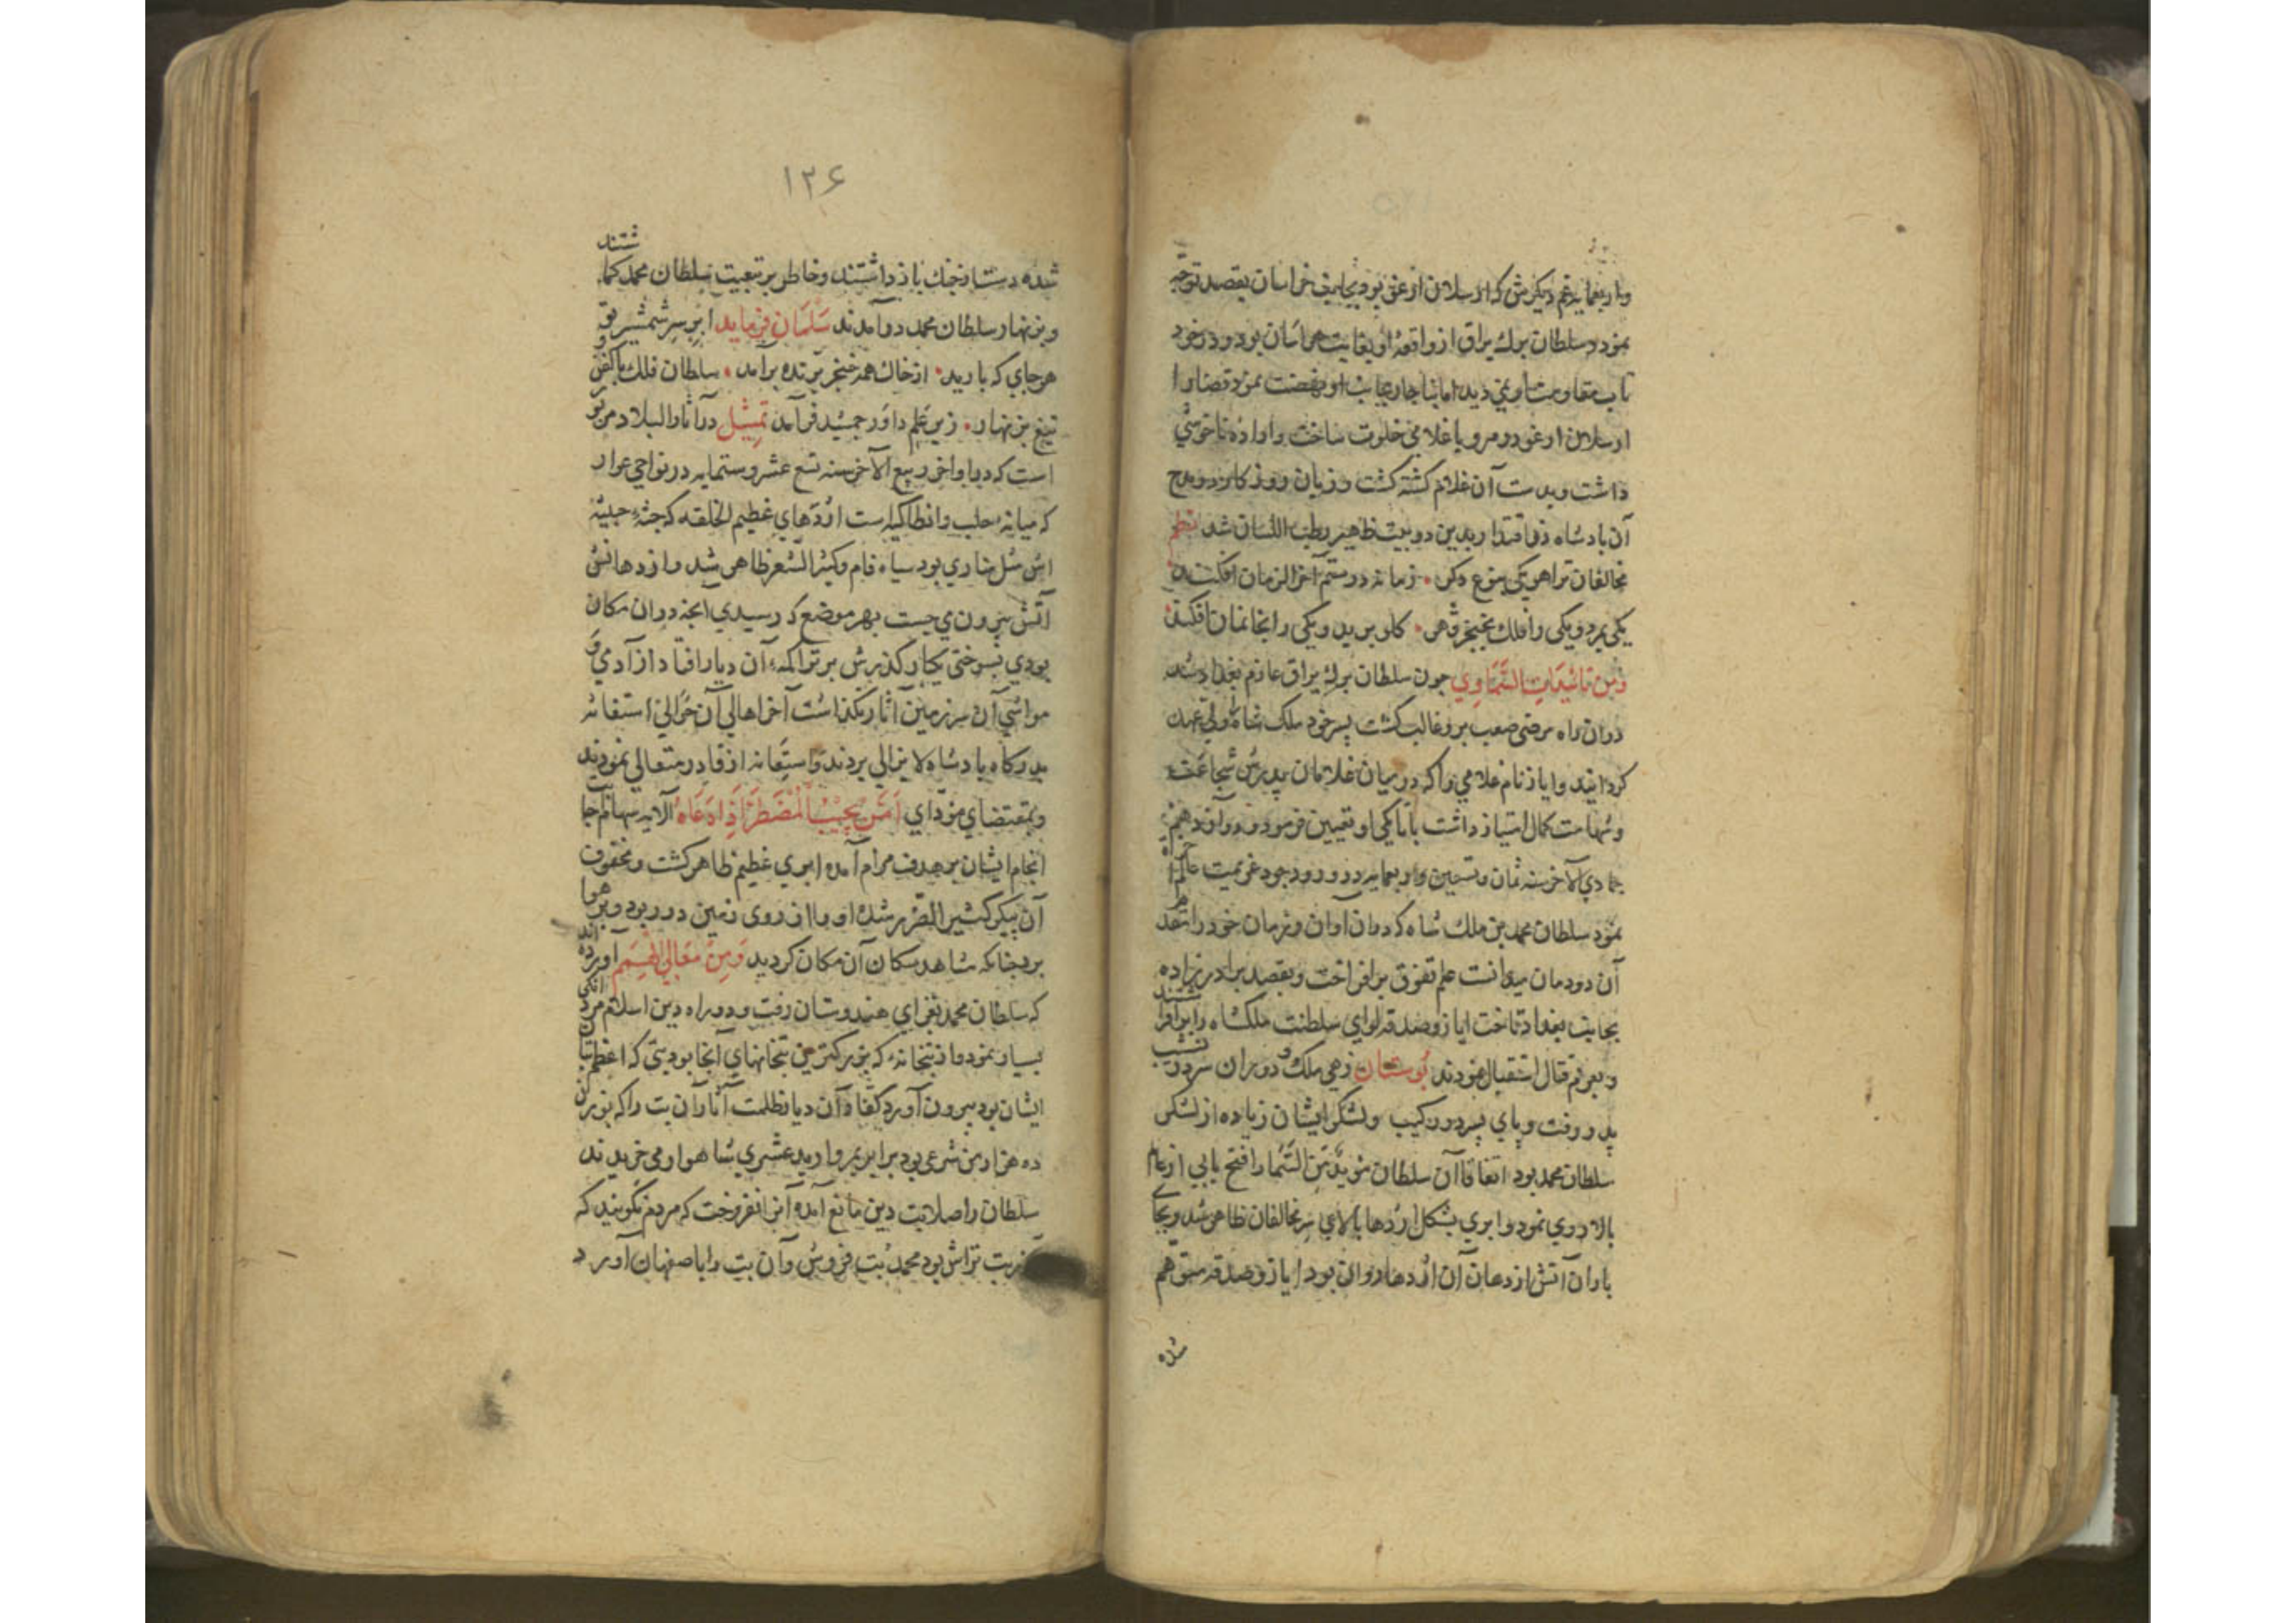 واربعمایه غم دیکرش که ارسلان ارغو بود بجانب خراسان بقصد توجّه
نمود و سلطان برك یراق از واقعهٔ او بغایت هراسان بود و در خود
تاب مقاومت او نمی دید اما بناچار بجانب او نهضت نمود قضا را
ارسلان ارغو در مرو با غلامی خلوت ساخت و ارادهٔ ناخوشی
داشت و بدست آن غلام کشته کشت و زبان روزکار در مدح
آن بادشاه ذو اقتدار بدین دو بیت ظهیر رطب اللسان شد نظم
مخالفان ترا هر یکی بنوع دکر • زمانه در ستم آخر الزمان افکند
یکی بمرد و یکی را فلك بخنجر قهر • کلو برید و یکی را بخانمان افکند
ومن تائیدات السّماوی جون سلطان برك یراق عازم بغداد شد
در ان راه مرضی صعب برو غالب کشت پسر خود ملك شاه را ولی عهد
کردانید و ایاز نام غلامی را که در میان غلامان پدرش شجاعت
و شهامت کمال امتیاز داشت باتابکی او تعیین فرمود و در دوازدهم
جمادی الآخر سنه ثمان و تسعین و اربعمایه در ورودجرد عزیمت عالم
نمود سلطان محمد بن ملك شاه که در ان آوان و زمان خود را
آن دودمان میدانست علم تفوق برافراخت و بقصد برادر زاده
بجانب بغداد تاخت ایاز و صدقه لوای سلطنت ملکشاه را برافرا
شتند
و بعزم قتال استقبال نمودند بوستان زهی ملك و دوران سر در نشیب
پدر رفت و پای پسر در رکیب ولشکر ایشان زیاده از لشکر
سلطان محمد بود اتفاقا آن سلطان مؤیّد مِن السّما را فتح یابی از عالم
بالا روی نمود و ابری بشکل اژدها بالای سر مخالفان ظاهر شد و بجای
باران آتش از دهان آن اژدها روان بود ایاز و صدقه متوهم
شده
۱۲۶
شده دست از جنك باز داشتند و خاطر بر تبعیت سلطان محمد کما
شتند
و بزنهار سلطان محمد در آمدند سلمان فرماید ابر سر شمشیر تو
هر جای که بارید • از خاك همه خنجر برنده برآمد • سلطان فلك با کفن و
تیغ بزنهار • زیر علم داور جمشید فر آمد تمثیل در آثار البلاد مزبور
است که در اواخر ربیع الآخر سنه تسع عشر و ستمایه در نواحی عرار
که میانه حلب و انطاکیه است اژدهای عظیم الخلقه که جثه خبیثه
اش مثل مناری بود سیاه فام و کثیر الشعر ظاهر شد و از دهانش
آتش بیرون می جست بهر موضع که رسیدی آنجه در ان مکان
بودی بسوختی یکبار کذرش بر تراکمه آن دیار افتاد از آدمی و
مواشی آن سرزمین آثار نکذاشت آخر اهالی آن حوالی استغاثه
بدرکاه بادشاه لا یزالی بردند و استعانه از قادر متعالی نمودند
و بمقتضای مؤدّای اَمَّن یُجیبُ المُضطَرَّ اِذا دَعَاهُ الآیه سهام
انجام ایشان بر هدف مرام آمده ابری عظیم ظاهر کشت و محفوف
آن پیکر کثیر الضرر شده او را از روی زمین در ربود و بر هوا
برد جنانکه مشاهد سکان آن مکان کردید وَمِن مَعَالی الهِمَم آورده
اند
که سلطان محمد بغزای هندوستان رفت و در راه دین اسلام مردانکی
بسیار نمود و از بتخانه که بزرکترین بتخانهای آنجا بود بتی که اعظم بتان
ایشان بود بیرون آورد کفار آن دیار ظلمت آثار آن بت را که بوزن
ده هزار من شرعی بود برابر بمروارید عشری شاهوار می خریدند
سلطان را صلابت دین مانع آمده آنرا نفروخت که مردم نکویند که
آزر بت تراش بود محمد بت فروش و آن بت را باصفهان آورد